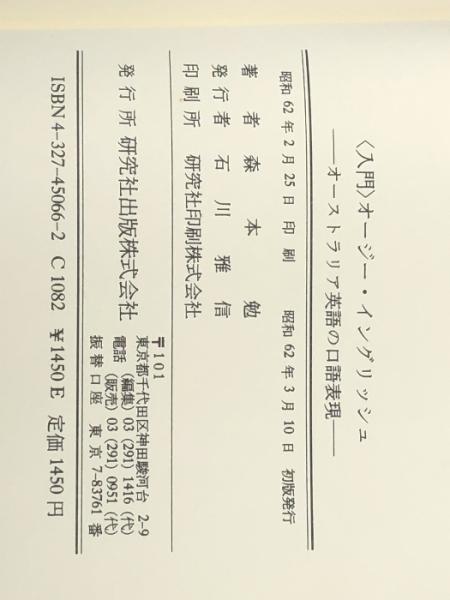 〈入門〉オージー・イングリッシュ
——オーストラリア英語の口語表現——
昭和 62 年 2 月 25 日 印 刷 昭和 62 年 3 月 10 日 初版発行
著者 森本 勉
発行者 石川雅信
印刷所 研究社印刷株式会社
発行所 研究社出版株式会社
〒101
東京都千代田区神田駿河台 2-9
電話 (編集) 03 (291) 1416 (代)
(販売) 03 (291) 0951 (代)
振替口座 東京 7-83761 番
ISBN 4-327-45066-2 C 1082 ¥1450 E 定価 1450 円